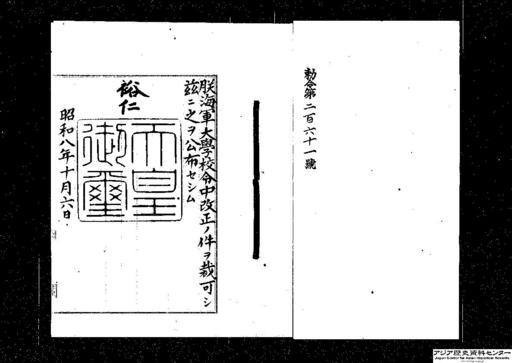 勅令第二百六十一號
朕海軍大學校令中改正ノ件ヲ裁可シ
茲ニ之ヲ公布セシム
裕仁
天皇
御璽
昭和八年十月六日
アジア歴史資料センター
Japan Center for Asian Historical Records